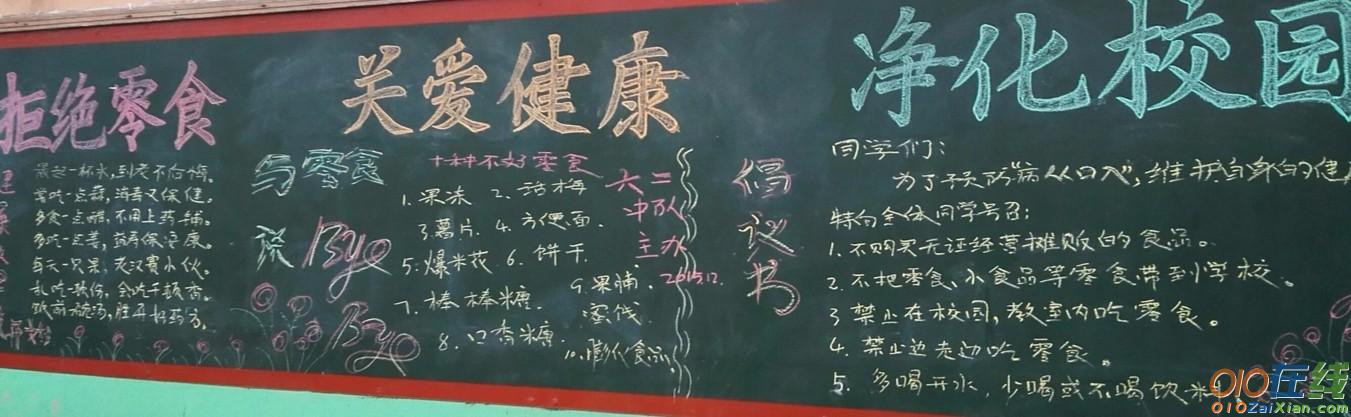 拒绝零食
晨起一杯水,到老不后悔。
常吃一点蒜,消毒又保健。
多食一点醋,不用上药铺。
多吃一点姜,益寿保安康。
每天一只果,老汉赛小伙。
乱吃一顿伤,会吃千顿香。
饭前一碗汤,胜开好药方。
关爱健康
与零食
说Bye
Bye
十种不好零食
1.果冻 2.话梅
3.薯片 4.方便面.
5.爆米花 6.饼干
7.棒棒糖.
8.口香糖.
9.果脯.
蜜饯
10.膨化食品
六二
中队
主办
2015.12.
净化校园
倡议书
同学们:
为了预防“病从口入”,维护自身的健
特向全体同学号召:
1.不购买无证经营摊贩的食品。
2.不把零食、小食品等零食带到学校。
3 禁止在校园,教室内吃零食。
4.禁止边走边吃零食。
5.多喝开水,少喝或不喝饮
010在线
010ZaiXian.com